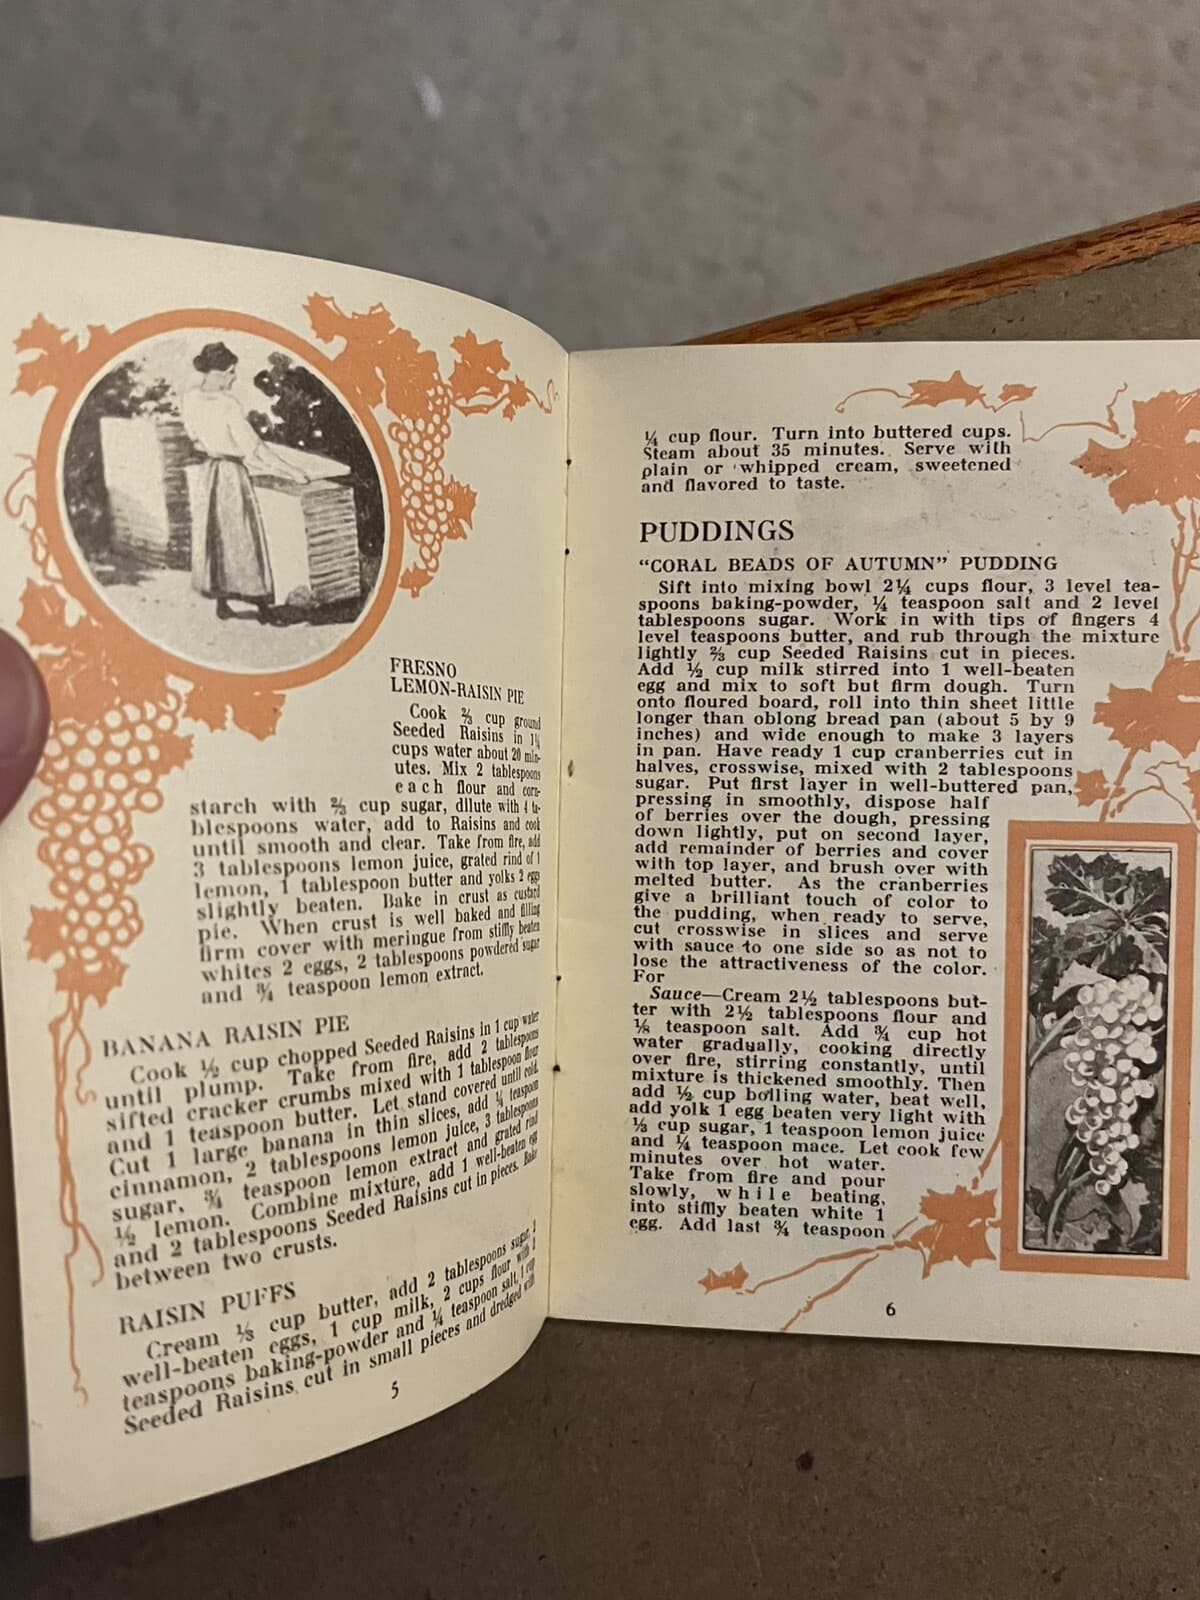 FRESNO
LEMON-RAISIN PIE
Cook ⅔ cup ground
Seeded Raisins in 1¼
cups water about 20 min-
utes. Mix 2 tablespoons
each flour and corn-
starch with ⅔ cup sugar, dilute with 4 ta-
blespoons water, add to Raisins and cook
until smooth and clear. Take from fire, add
3 tablespoons lemon juice, grated rind of 1
lemon, 1 tablespoon butter and yolks 2 eggs
slightly beaten. Bake in crust as custard
pie. When crust is well baked and filling
firm cover with meringue from stiffly beaten
whites 2 eggs, 2 tablespoons powdered sugar
and ¾ teaspoon lemon extract.
BANANA RAISIN PIE
Cook ½ cup chopped Seeded Raisins in 1 cup water
until plump. Take from fire, add 2 tablespoons
sifted cracker crumbs mixed with 1 tablespoon flour
and 1 teaspoon butter. Let stand covered until cold.
Cut 1 large banana in thin slices, add ¼ teaspoon
cinnamon, 2 tablespoons lemon juice, 3 tablespoons
sugar, ¾ teaspoon lemon extract and grated rind
½ lemon. Combine mixture, add 1 well-beaten egg
and 2 tablespoons Seeded Raisins cut in pieces. Bake
between two crusts.
RAISIN PUFFS
Cream ⅓ cup butter, add 2 tablespoons sugar, 2
well-beaten eggs, 1 cup milk, 2 cups flour with 2
teaspoons baking-powder and ¼ teaspoon salt, 1 cup
Seeded Raisins cut in small pieces and dredged with
5
¼ cup flour. Turn into buttered cups.
Steam about 35 minutes. Serve with
plain or whipped cream, sweetened
and flavored to taste.
PUDDINGS
"CORAL BEADS OF AUTUMN" PUDDING
Sift into mixing bowl 2¼ cups flour, 3 level tea-
spoons baking-powder, ¼ teaspoon salt and 2 level
tablespoons sugar. Work in with tips of fingers 4
level teaspoons butter, and rub through the mixture
lightly ⅔ cup Seeded Raisins cut in pieces.
Add ½ cup milk stirred into 1 well-beaten
egg and mix to soft but firm dough. Turn
onto floured board, roll into thin sheet little
longer than oblong bread pan (about 5 by 9
inches) and wide enough to make 3 layers
in pan. Have ready 1 cup cranberries cut in
halves, crosswise, mixed with 2 tablespoons
sugar. Put first layer in well-buttered pan,
pressing in smoothly, dispose half
of berries over the dough, pressing
down lightly, put on second layer,
add remainder of berries and cover
with top layer, and brush over with
melted butter. As the cranberries
give a brilliant touch of color to
the pudding, when ready to serve,
cut crosswise in slices and serve
with sauce to one side so as not to
lose the attractiveness of the color.
For
Sauce—Cream 2½ tablespoons but-
ter with 2½ tablespoons flour and
⅛ teaspoon salt. Add ¾ cup hot
water gradually, cooking directly
over fire, stirring constantly, until
mixture is thickened smoothly. Then
add ½ cup boiling water, beat well,
add yolk 1 egg beaten very light with
⅓ cup sugar, 1 teaspoon lemon juice
and ¼ teaspoon mace. Let cook few
minutes over hot water.
Take from fire and pour
slowly, while beating,
into stiffly beaten white 1
egg. Add last ¾ teaspoon
6